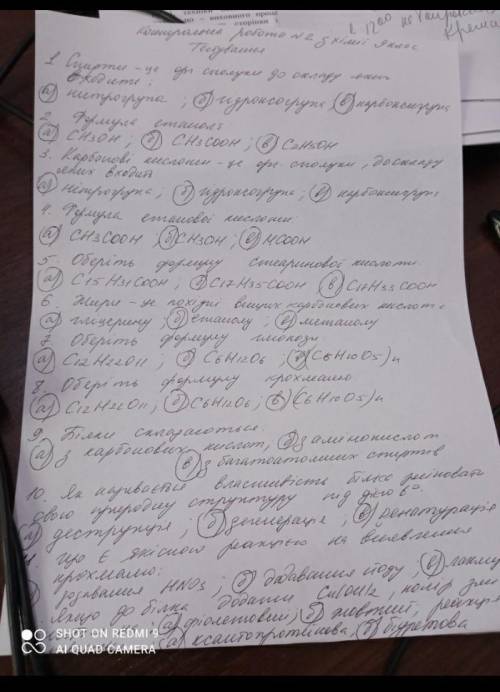 Контрольна робота №2 з хімії 9 клас
Тестування
1. Спирти - це орг. сполуки до складу яких
входить:
а) нітрогрупа; б) гідроксогрупа; в) карбоксигрупа
2. Формула етанолу
а) CH3OH; б) CH3COOH; в) C2H5OH
3. Карбонові кислоти - це орг. сполуки, до складу
яких входить
а) нітрогрупа; б) гідроксогрупа; в) карбоксигрупа
4. Формула етанової кислоти
а) CH3COOH; б) CH3OH; в) HCOOH
5. Оберіть формулу стеаринової кислоти
а) C15H31COOH; б) C17H35COOH в) C17H33COOH
6. Жири - це похідні вищих карбонових кислот і
а) гліцерину; б) етанолу; в) метанолу
7. Оберіть формулу глюкози
а) C12H22O11; б) C6H12O6; в) (C6H10O5)n
8. Оберіть формулу крохмалю
а) C12H22O11; б) C6H12O6; в) (C6H10O5)n
9. Білки складаються:
а) з карбонових кислот, б) з амінокислот
в) з багатоатомних спиртів
10. Як називається властивість білка змінювати
свою природну структуру під дією t°
а) деструкція; б) денатурація
що є якісною реакцією на виявлення
крохмалю:
додавання HNO3; б) додавання йоду; в)
Якщо до білка додати Cu(OH)2,
а) фіолетовий; б) жовтий,
а) ксантопротеїнова, б) біуретова
SHOT ON REDMI 9
AI QUAD CAMERA